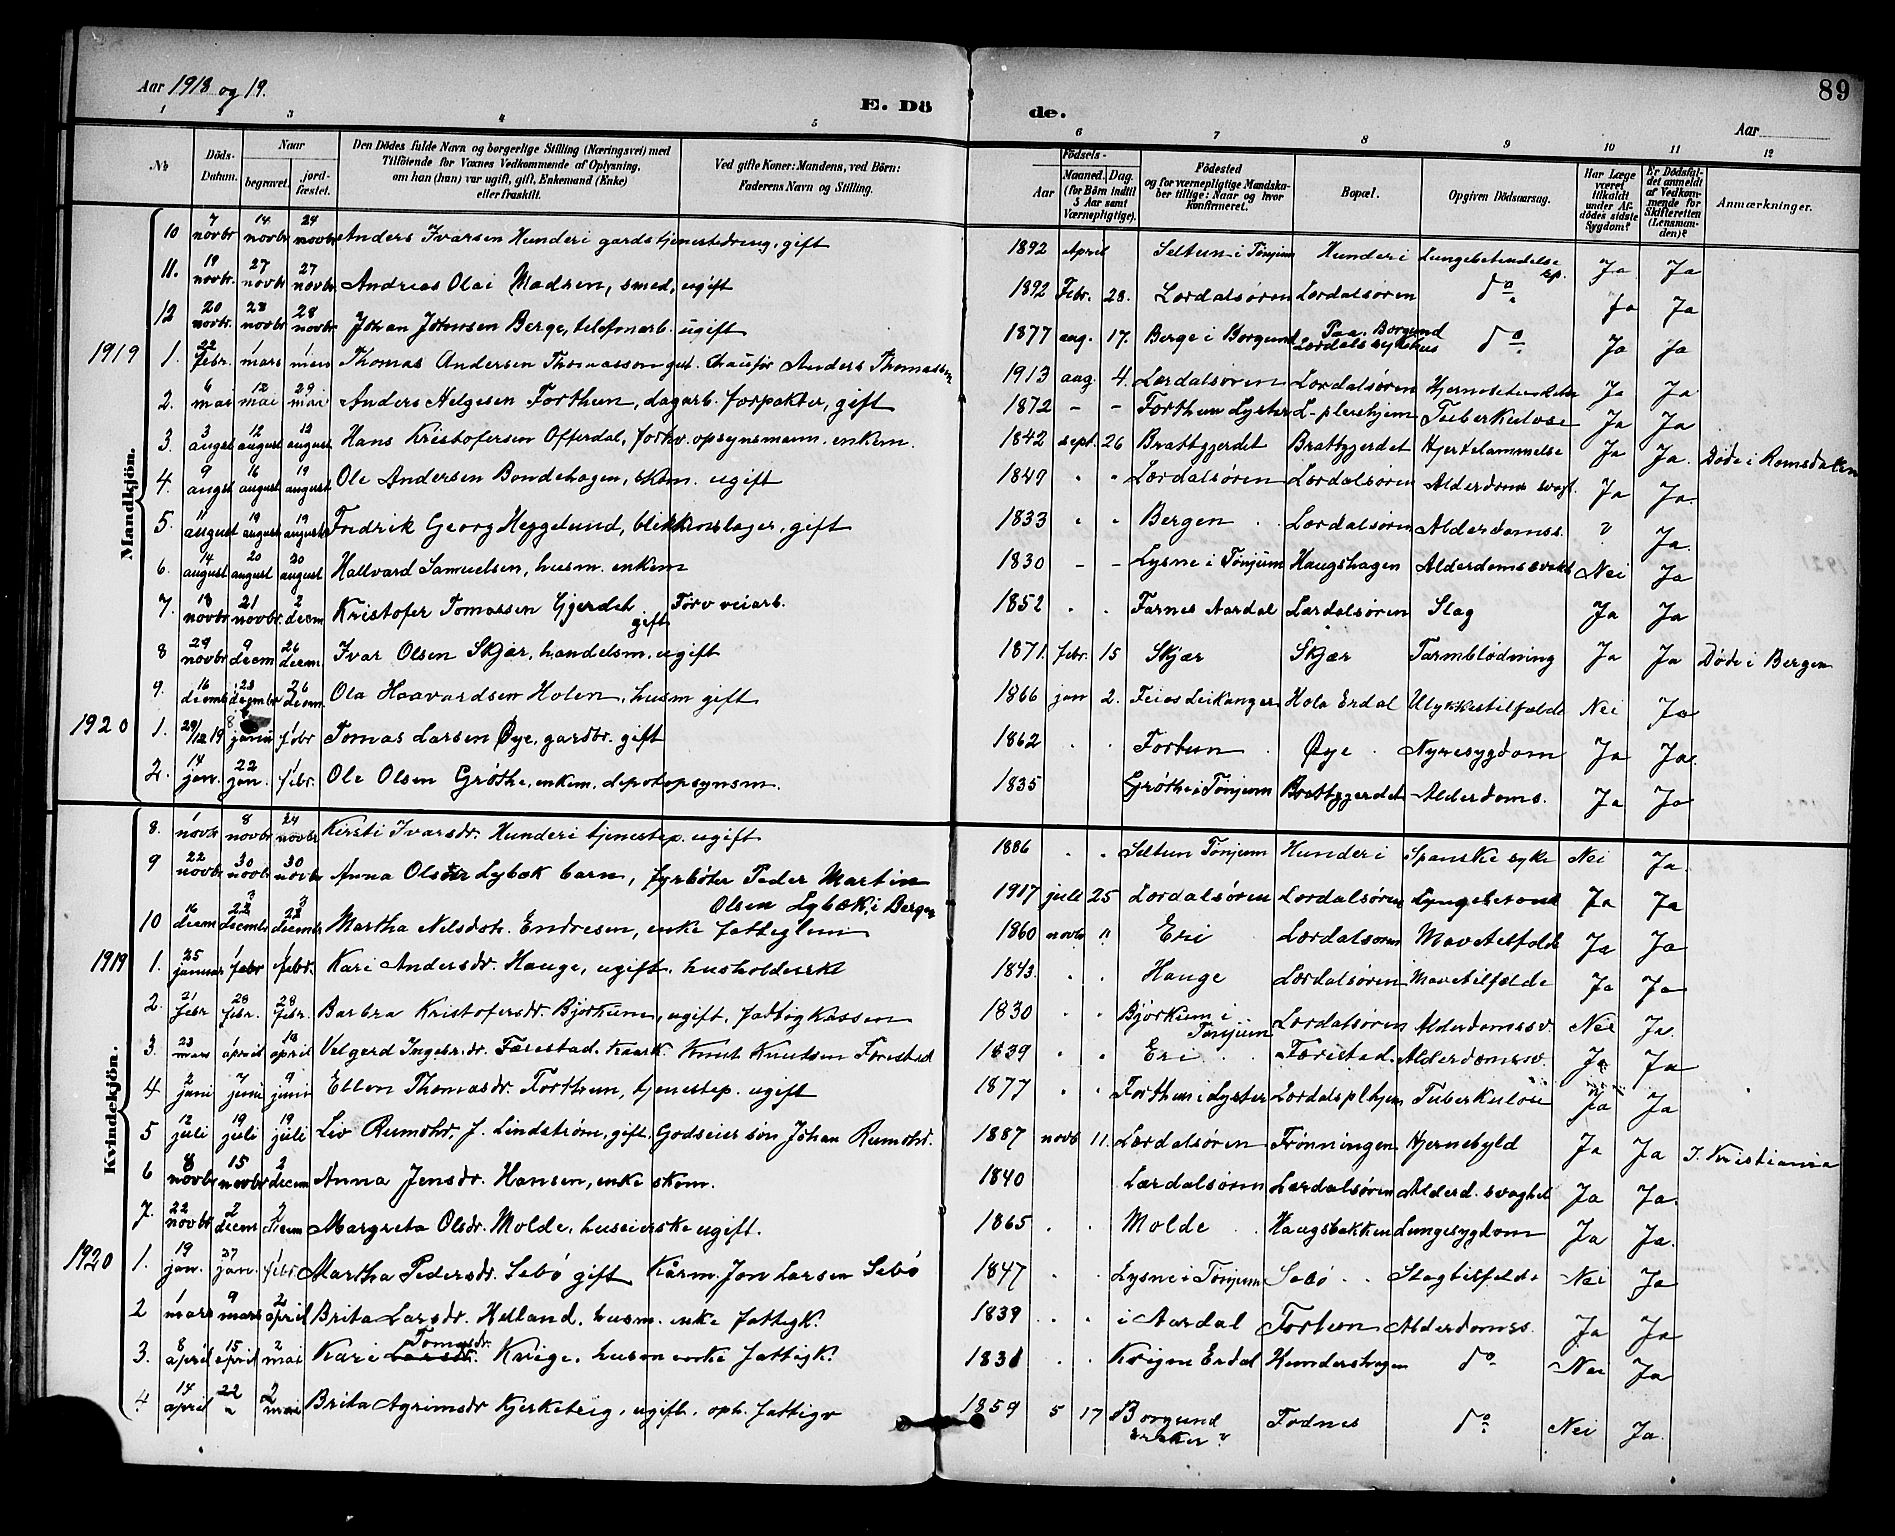 Aar 1918 og 19.
E. Dö
de.
89
Aar
1 2 3 4 5 6 7 8 9 10 11 12
No
Döds-Datum.
Naar
begravet.
jord-fæstet.
Den Dödes fulde Navn og borgerlige Stilling (Næringsvei) med
Tilföiende for Voxnes Vedkommende af Oplysning,
om han (hun) var ugift, gift, Enkemand (Enke)
eller fraskilt.
Ved gifte Koner: Mandens, ved Börn:
Faderens Navn og Stilling.
Födsels-
Aar
Maaned. Dag.
(for Börn indtil 5 Aar samt Værnepligtige).
Födested
og for værnepligtige Mandska-
ber tillige: Naar og hvor
konfirmeret.
Bopæl.
Opgiven Dödsaarsag.
Har Læge været tilkaldt under Afdödes sidste Sygdom?
Er Dödsfaldet anmeldt af Vedkommende for Skifteretten (Lensmanden)?
Anmærkninger.
Mandkjön.
10 7 novbr 14 novbr 24 novbr Anders Ivarsen Hunderi gardstjenestedreng, gift 1892 april Seltun i Tønjum Hunderi Lungebetendelse sp. Ja Ja
11. 19 novbr. 27 novbr 27 novbr Andreas Olai Madsen, smed, ugift 1892 Febr. 28. Lærdalsøren Lærdalsøren do Ja Ja
12 20 novbr. 28 novbr 28 novbr Johan Johnsen Berge, telefonarb. ugift 1877 aug. 17. Berge i Borgund Paa Borgund Lærdals sykehus do Ja Ja
1919 1. 22 febr. 1 mars 1 mars Thomas Andersen Thomassen gut. Chaufør Anders Thomassen 1913 aug. 4. Lærdalsøren Lærdalsøren Ja Ja
2. 6 mai 12 mai 29 mai Anders Helgesen Forthun, dagarb. forpakter, gift 1872 - - Forthun Lyster L-pleiehjem Tuberkulose Ja Ja
3 3 augst 12 august 12 august Hans Kristofersen Offerdal, forhv. opsynsmann. enkem. 1842 sept. 26 Brattgjerdet Brattgjerdet Hjertelammelse Ja Ja. Døde i Romsdalen
4. 9 augst 16 august 19 august Ole Andersen Bondehagen, skom. ugift 1849 " " Lærdalsøren Lærdalsøren Alderdoms svagh. Ja Ja.
5. 11 august 19 august 19 august Fredrik Georg Heggelund, blikkenslager, gift 1833 " " Bergen Lærdalsøren Alderdomss. ? Ja.
6. 14 august 20 august 20 august Hallvard Samuelsen, husm. enkem 1830 - - Lysne i Tønjum Haugshagen Alderdomssvakh Nei Ja
7. 18 novbr 21 novbr. 2 decm Kristofer Tomassen Gjerdet gift Forv veiarb. 1852 " " Farnes Aardal Lærdalsøren Slag Ja Ja
8 29 novbr 9 decm 26 decm. Ivar Olsen Skjær, handelsm. ugift 1871. febr. 15 Skjær Skjær Tarmblødning Ja Ja Døde i Bergen
9. 16 decmb 23 decmbr 26 decm. Ola Haavardsen Holen, husm gift 1866 jan 2. Feios Leikanger Hola Erdal Ulykkestilfælde Nei Ja
1920 1. 29/12 19 8 januar 1 febr Tomas Larsen Øye, gardbr. gift 1862 " " Fortun Øye Nyresygdom Ja Ja.
2. 14 jan. 22 jan. 1 febr. Ole Olsen Grøthe, enkem. depotopsynsm. 1835 Grøthe i Tønjum Brattgjerdet Alderdoms. Ja Ja
Kvindekjön.
8. 1 novbr 8 novbr 24 novbr Kirsti Ivarsdr. Hunderi tjenestep. ugift 1886 " " Seltun Tønjum Hunderi Spanske syke Nei Ja.
9 22 novbr 30 novbr 30 novbr Anna Olsen Lybæk barn, fyrbøter Peder Martin
Olsen Lybæk, i Bergen 1917 juli 25 Lærdalsøren Lærdalsøren Lungebetend Ja Ja
10 16 decm decmb decmb Martha Nilsdotr. Endresen, enke fatteglem 1860 novb " Eri Lærdalsøren Mavetilfælde Ja Ja
1919 1. 25 januar 1 febr 1 febr. Kari Andersdr. Hauge, ugift, husholderske 1843. " " Hauge Lærdalsøren Mavetilfælde Ja Ja
2. 21 febr 28 febr. 28 febr. Barbra Kristofersdr. Bjørkum, ugift, fattigkassen 1830 " " Bjørkum i Tønjum Lærdalsøren Alderdomssv. Nei Ja.
3. 23 mars 1 april 18 april Velgerd Ingebr.dr. Færestad. kaark. Knut Knutsen Færestad 1839 " " Eri Færestad. Alderdomssv. Ja Ja
4 2 juni 7 juni 9 juni Ellen Thomasdr. Forthun, tjenestep. ugift 1877 " " Forthun i Lyster Lærdals plhjem Tuberkulose Ja Ja
5 12 juli 19 juli 19 juli Liv Rumohr, f. Lindstrøm, gift. Godseier søn Johan Rumohr. 1887 novb 11. Lærdalsøren Frønningen Hjernebyld Ja Ja I. Kristiania
6 8 novbr 15 novbr 2 decem Anna Jensdr. Hansen, enke skom. 1840 Lærdalsøren Lærdalsøren Alderd. svaghet Ja Ja.
7. 22 novbr 2 decm 2 decm Margreta Olsdr. Molde, huseierske ugift. 1865 " " Molde Haugsbakken Lungesygdom Ja Ja.
1920 1. 19 jan. 27 jan. 1 febr. Martha Pedersdr. Sebø gift Kårm. Jon Larsen Sebø 1847 " " Lysne i Tønjum Sebø Slagtilfelde Nei Ja
2 1 mars 9 mars 2 april Brita Larsdr. Helland, husm. enke fattigk. 1839 " " i Aardal Fortun Alderdomss. Ja Ja
3. 8 april 15 april 2 mai Kari Larsdr. Tomasdr. Kvige, husm enke fattigk. 1831 " " Kvigne Erdal Hundershagen do Nei Ja
4 14 april 22 " 2 mai Brita Agrimsdr Kjerketeig, ugift, oph. fattigv 1859 5 17 Borgund Fodnes do Nei Ja.